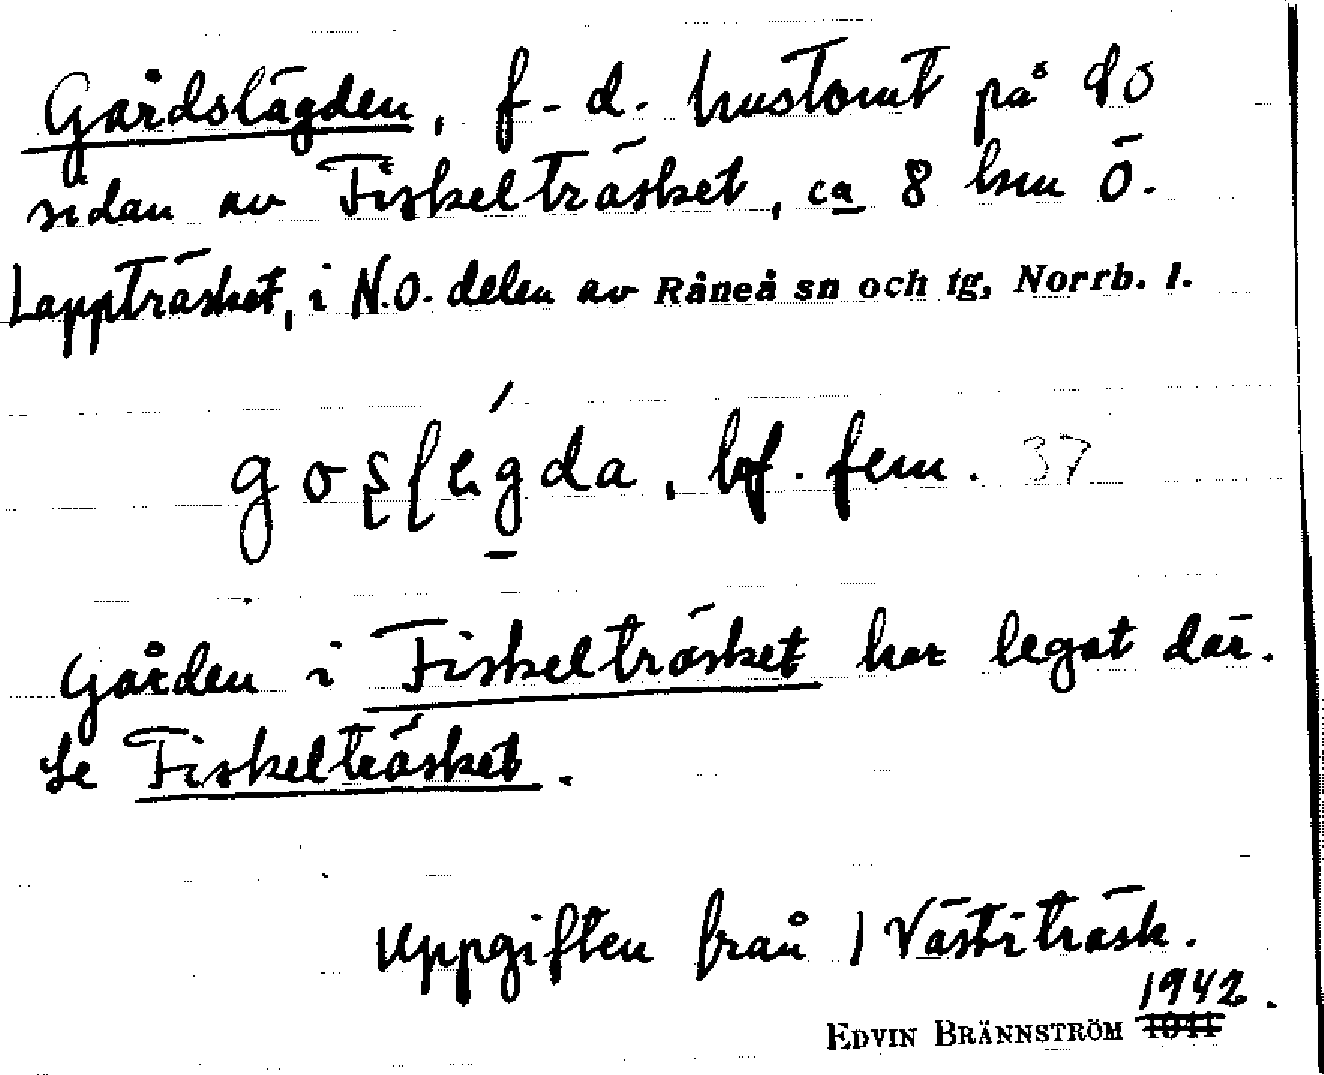 Gårdslägden, f.d. hustomt på
sidan av Fiskelträsket, ca 8 km Ö.
Lappträsket, i N.O. delen av Råneå sn och tg, Norrb. l.
bf. fem. 37
Gården i Fiskelträsket har legat där.
Se Fiskelträsket.
Uppgiften från Västiträsk.
1942.
EDVIN BRÄNNSTRÖM 1941